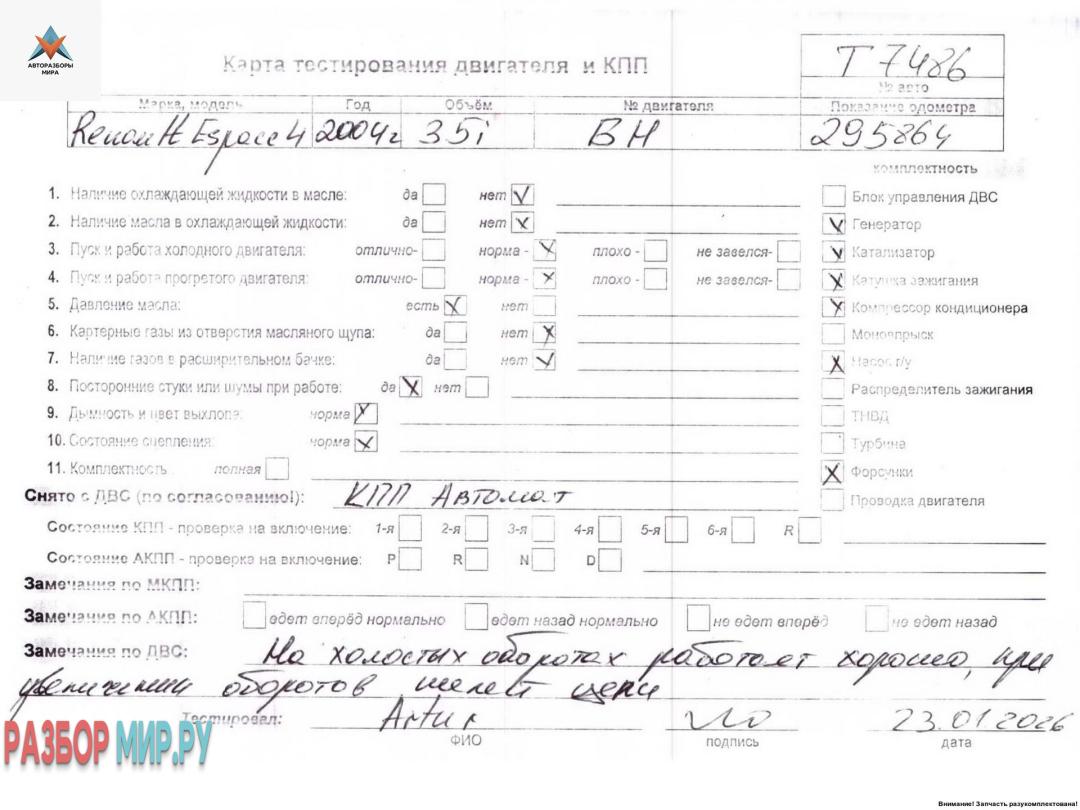 АВТОРАЗБОРЫ
МИРА
Карта тестирования двигателя и КПП
Т 7486
№ авто
Марка, модель Год Объём № двигателя Показание одометра
Renault Espace 4 2004г 35i ВН 295864
комплектность
1. Наличие охлаждающей жидкости в масле: да нет Блок управления ДВС
2. Наличие масла в охлаждающей жидкости: да нет Генератор
3. Пуск и работа холодного двигателя: отлично- норма - плохо - не завелся- Катализатор
4. Пуск и работа прогретого двигателя: отлично- норма - плохо - не завелся- Катушка зажигания
5. Давление масла: есть нет Компрессор кондиционера
6. Картерные газы из отверстия масляного щупа: да нет Моновпрыск
7. Наличие газов в расширительном бачке: да нет Насос г/у
8. Посторонние стуки или шумы при работе: да нет Распределитель зажигания
9. Дымность и цвет выхлопа: норма ТНВД
10. Состояние сцепления: норма Турбина
11. Комплектность полная Форсунки
Снято с ДВС (по согласованию!): КПП Автомат Проводка двигателя
Состояние КПП - проверка на включение: 1-я 2-я 3-я 4-я 5-я 6-я R
Состояние АКПП - проверка на включение: P R N D
Замечания по МКПП:
Замечания по АКПП: едет вперёд нормально едет назад нормально не едет вперёд не едет назад
Замечания по ДВС: На холостых оборотах работает хорошо, при
увеличении оборотов шелест цепи
Тестировал: Artur 23.01 2026
ФИО подпись дата
РАЗБОРМИР.РУ
Внимание! Запчасть разукомплектована!